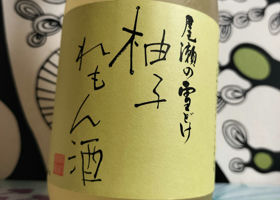 尾瀬の雪どけ
柚子
れもん酒